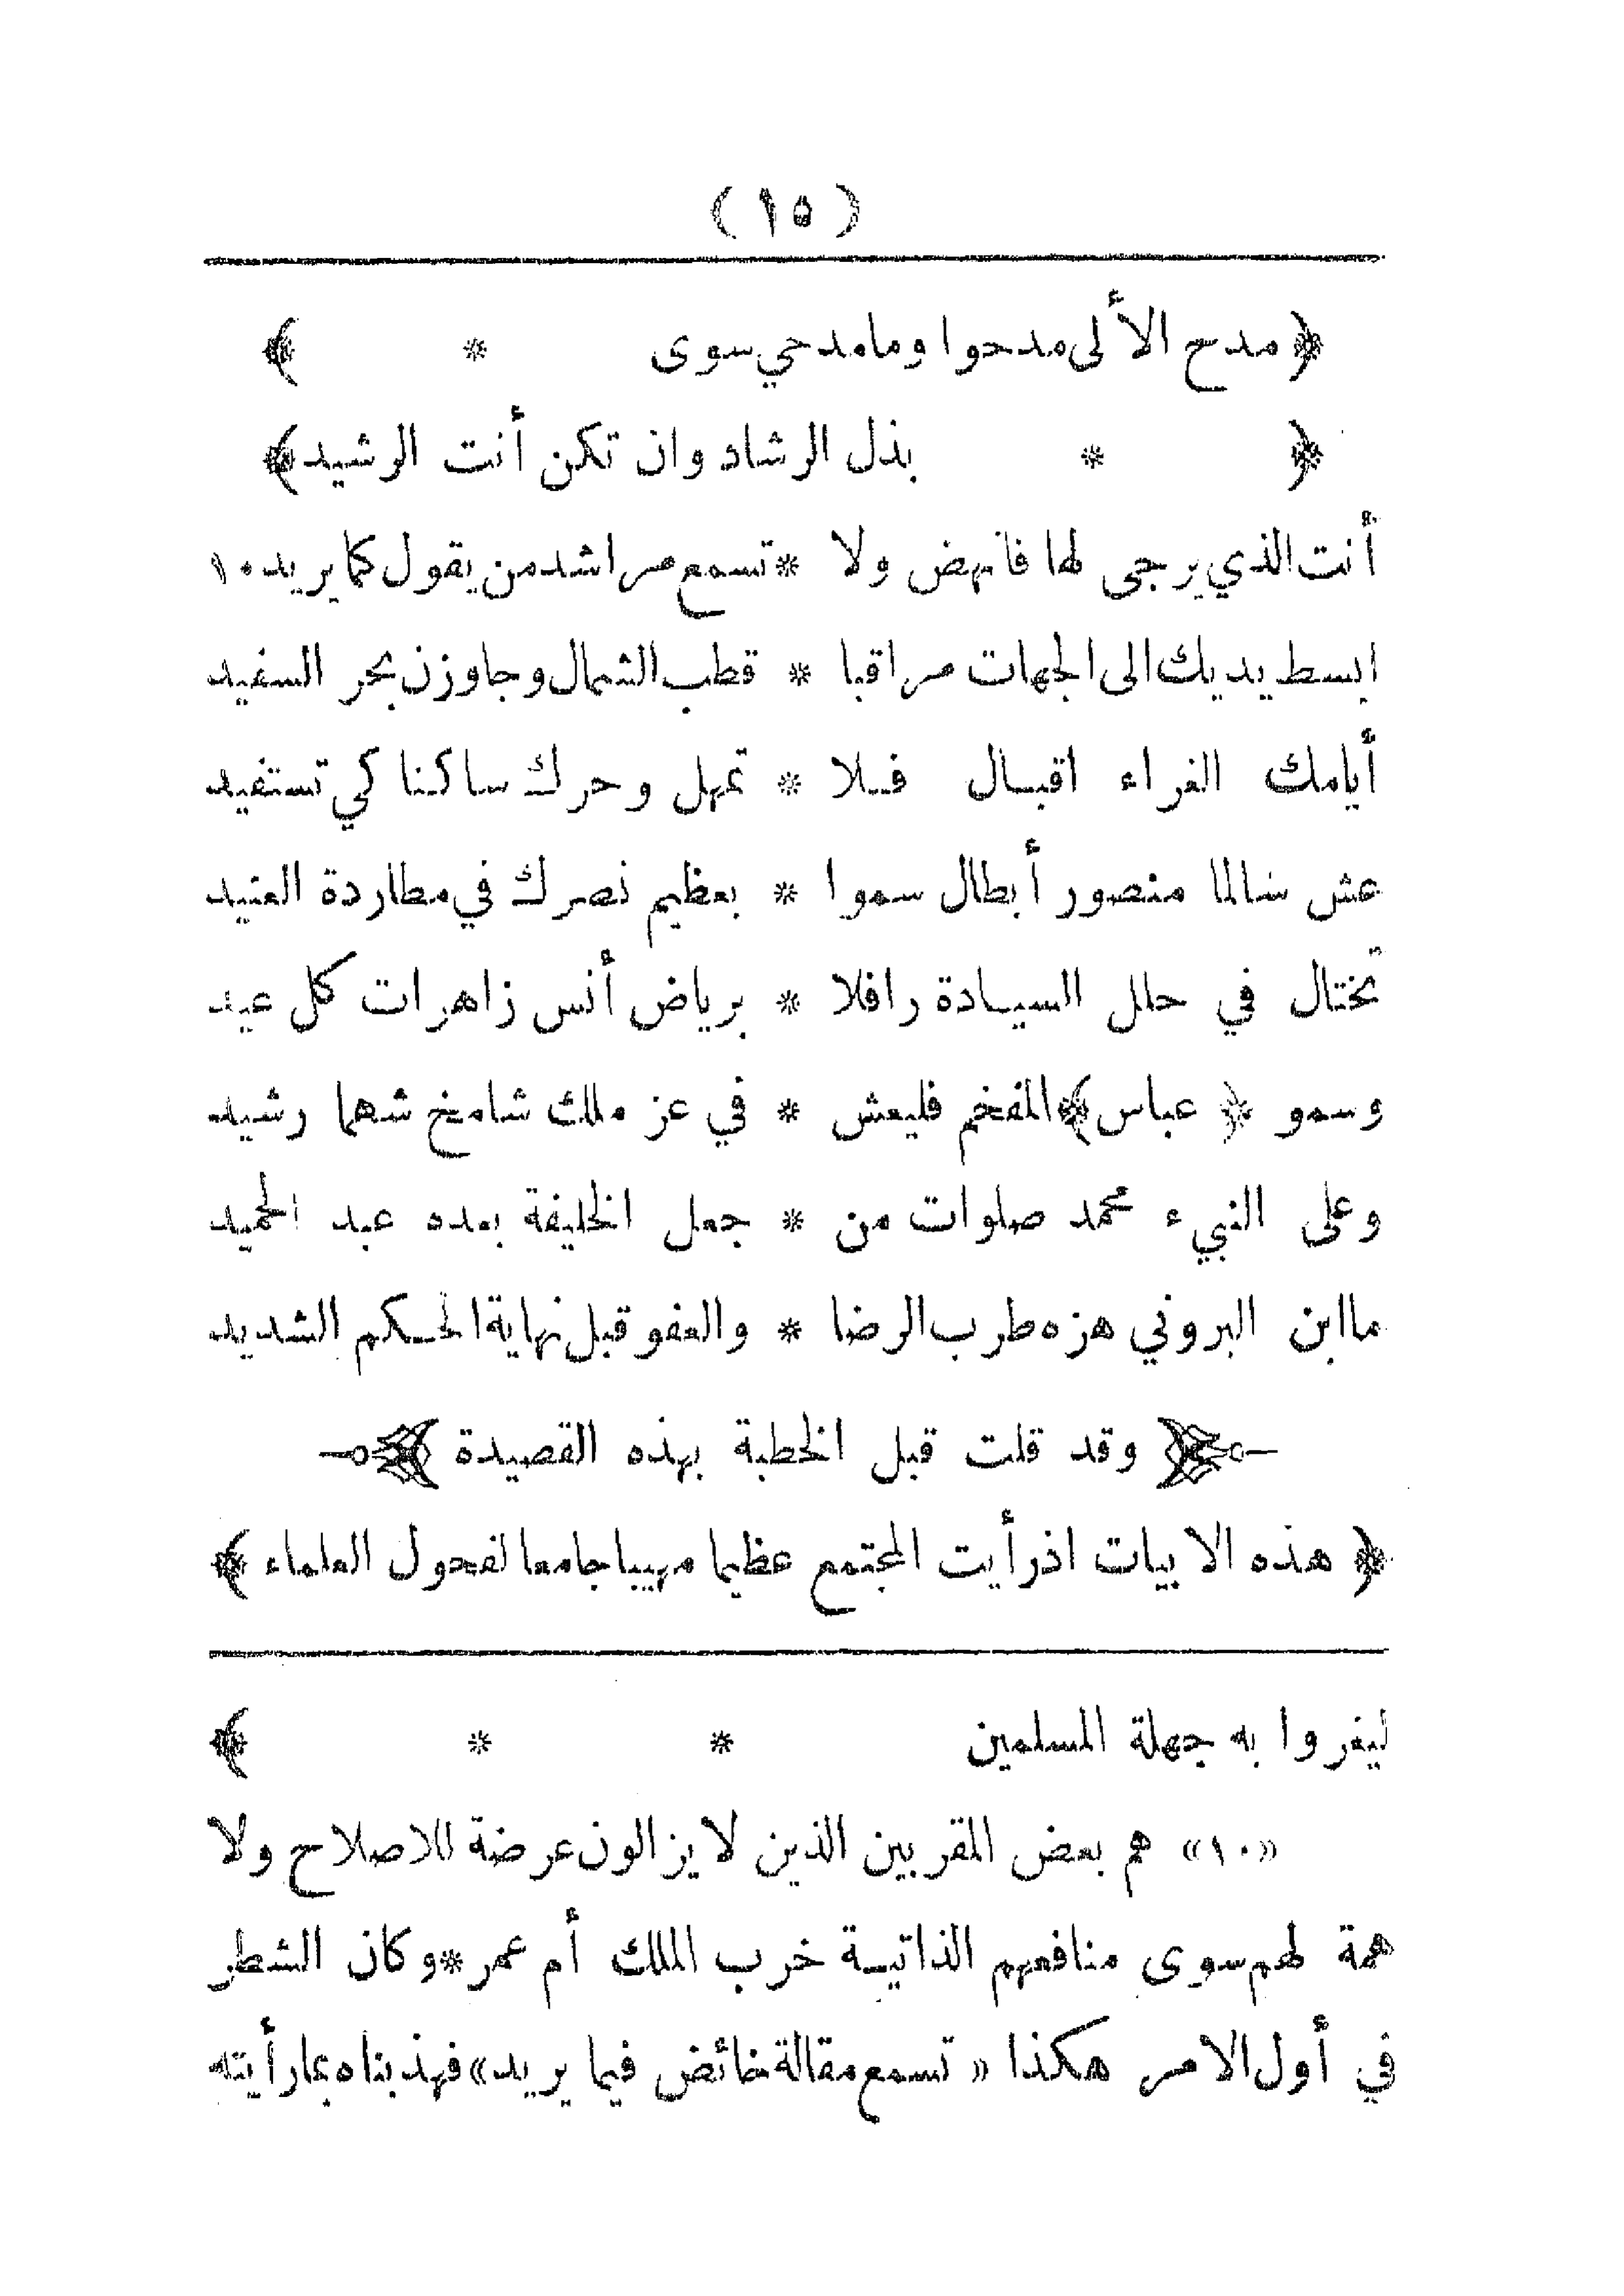 (١٥)
﴿ مدح الألى مدحوا وما مدحي سوى * ﴾
﴿ * بذل الرشاد وان تكن أنت الرشيد ﴾
أنت الذي يرجى لها فانهض ولا * تسمع مراشد من يقول كما يريد ١٠
ابسط يديك الى الجهات مراقبا * قطب الشمال وجاوزن بحر السفيد
أيامك الغراء اقبال فلا * تمهل وحرك ساكنا كي تستفيد
عش سالما منصور أبطال سموا * بعظيم نصرك في مطاردة العنيد
تختال في حلل السيادة رافلا * برياض أنس زاهرات كل عيد
وسمو ﴿ عباس ﴾ المفخم فليعش * في عز ملك شامخ شهما رشيد
وعلى النبيء محمد صلوات من * جعل الخليفة بعده عبد الحميد
ما ابن البروني هزه طرب الرضا * والعفو قبل نهاية الحكم الشديد
﴿ وقد قلت قبل الخطبة بهذه القصيدة ﴾
﴿ هذه الابيات اذ رأيت المجتمع عظيما مهيبا جامعا لفحول العلماء ﴾
ليغروا به جهلة المسلمين * * ﴾
«١٠» هم بعض المقربين الذين لا يزالون عرضة للاصلاح ولا
همة لهم سوى منافعهم الذاتية خرب الملك أم عمر * وكان الشطر
في أول الامر هكذا « تسمع مقالة خائض فيما يريد» فهذبناه بما رأيته